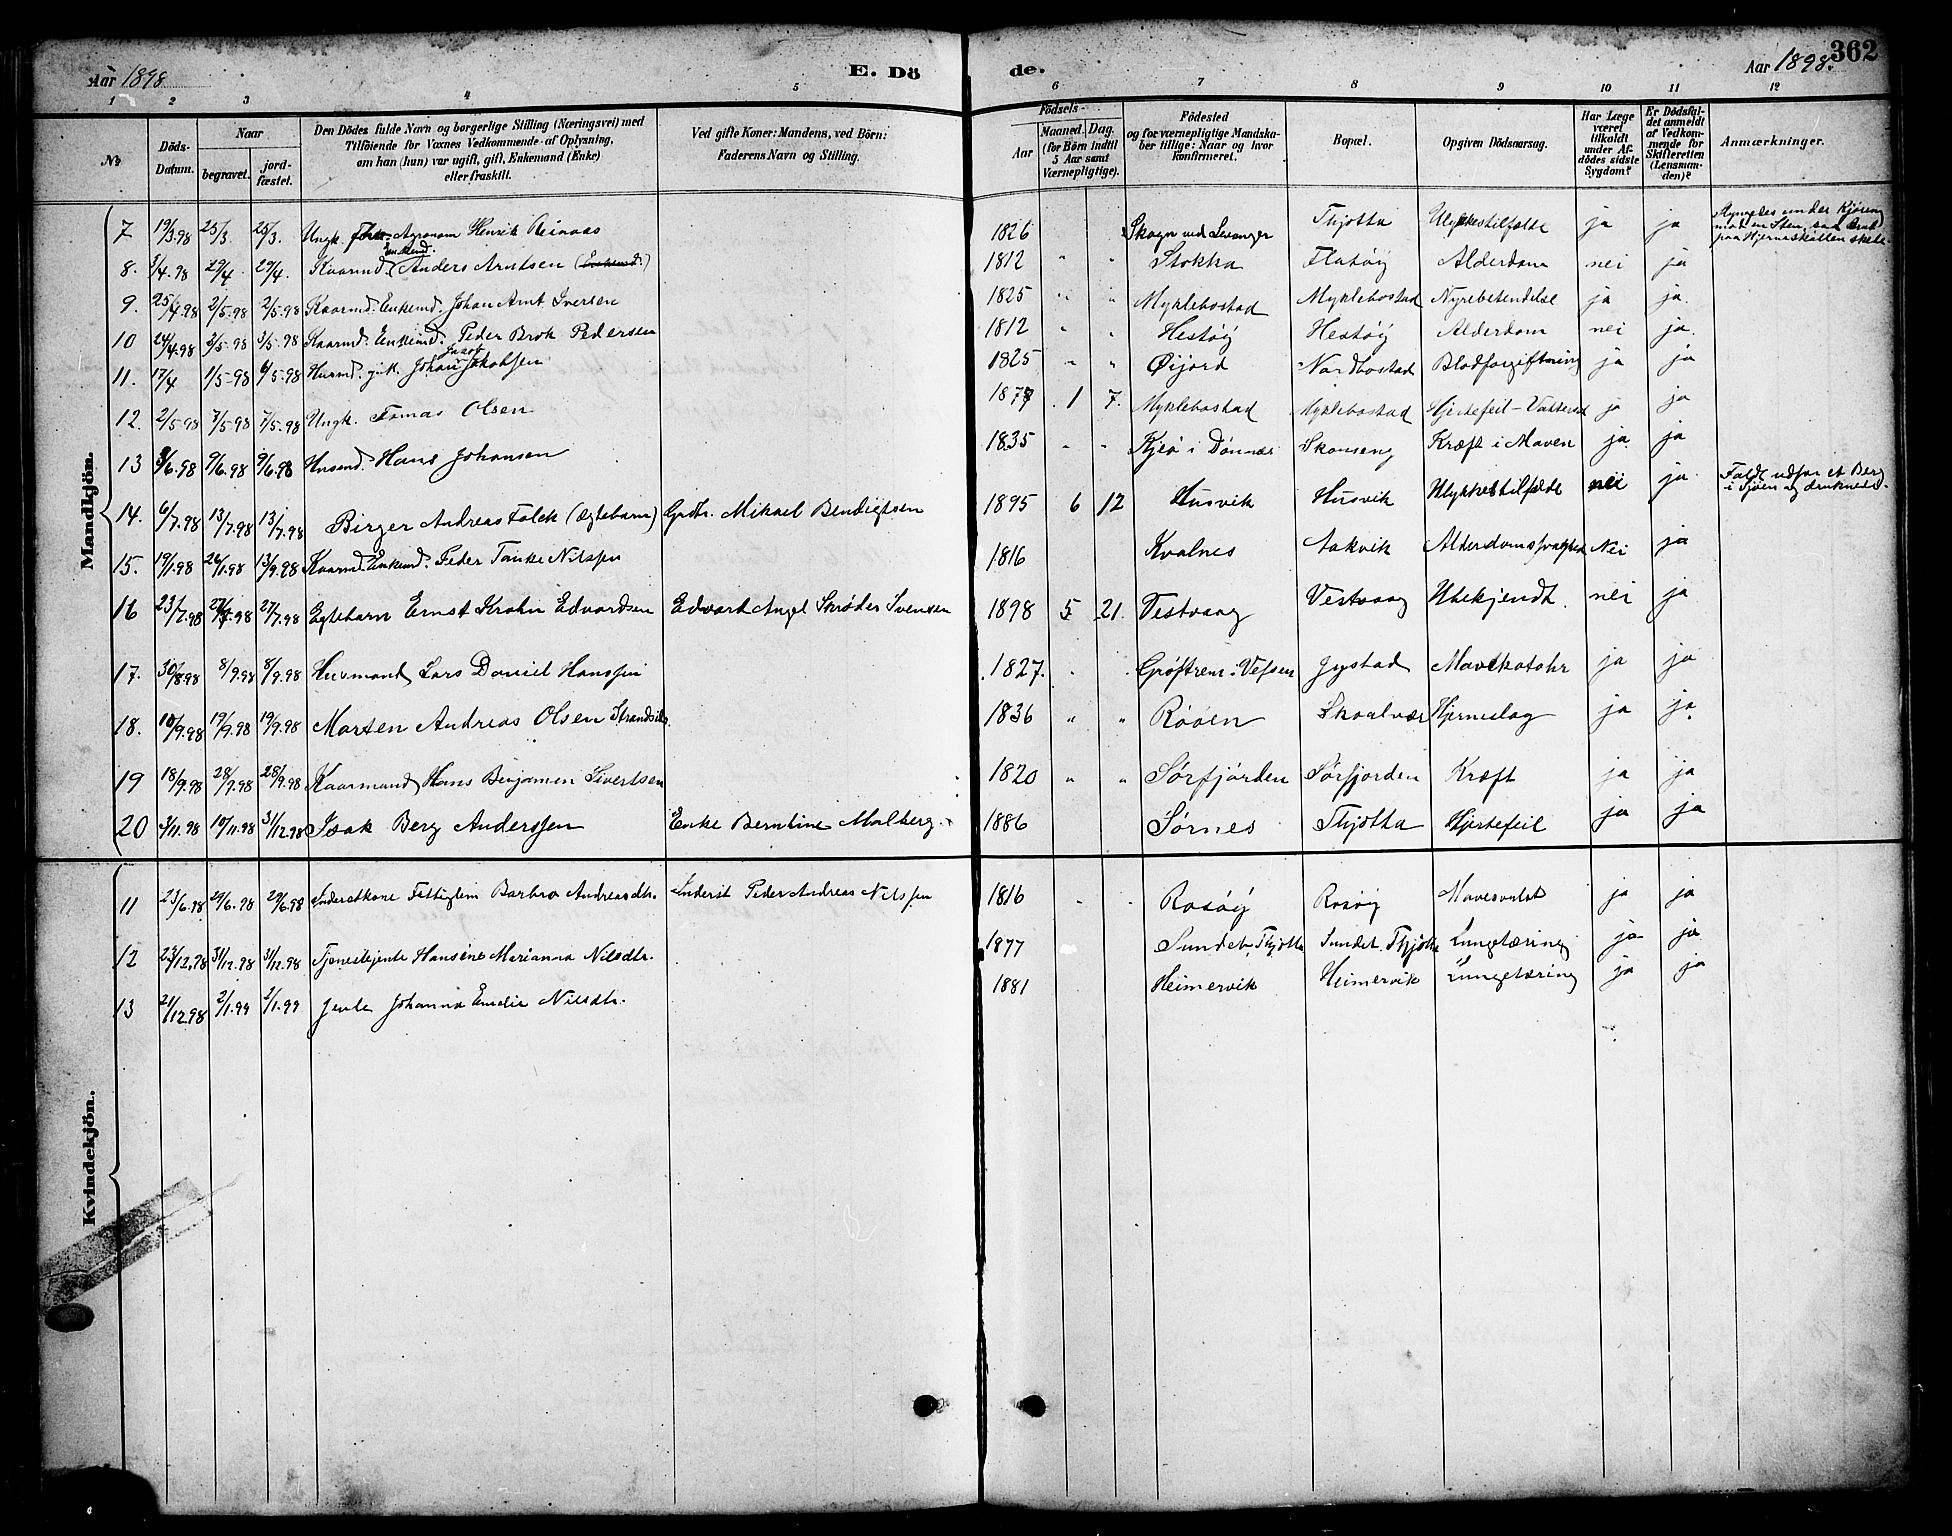 Aar 1898
E. Dö
de.
Aar 1898.
362
1 2 3 4 5 6 7 8 9 10 11 12
No
Döds-Datum.
Naar
begravet.
jordfæstet.
Den Dödes fulde Navn og borgerlige Stilling (Næringsvei) med
Tilföiende for Voxnes Vedkommende af Oplysning,
om han (hun) var ugift, gift, Enkemand (Enke)
eller fraskilt.
Ved gifte Koner: Mandens, ved Börn:
Faderens Navn og Stilling.
Födsels-
Aar
Maaned. Dag.
(for Börn indtil
5 Aar samt
Værnepligtige).
Födested
og for værnepligtige Mandska-
ber tillige: Naar og hvor
konfirmeret.
Bopæl.
Opgiven Dödsaarsag.
Har Læge
været
tilkaldt
under Af-
dödes sidste
Sygdom?
Er Dödsfal-
det anmeldt
af Vedkom-
mende for
Skifteretten
(Lensman-
den)?
Anmærkninger.
Mandkjön.
7 19/3.98 25/3 25/3. Ungk. Agronom Henrik Reinaas 1826 Skogn ved Levanger Thjotta Ulykkestilfælde ja ja
8. 4.98 29/4 29/4. Kaarmd. Enkemd Anders Arntsen 1812 " " Stokka Flatøy Alderdom nei ja
9. 25/4.98 2/5-98 2/5.98 Kaarmd. Enkemd. Johan Arnt Iversen 1825 " " Myklebostad Myklebostad Nyrebetendelse ja ja.
10 24/4.98 3/5-98 3/5.98 Kaarmd. Enkemd. Peder Brok Pedersen 1812 " " Hestøy Hestøy Alderdom nei ja
11. 17/4 1/5-98 6/5-98 Husmd. gift. Johan Jacob Jakobsen 1825 " " Øijord Nordbostad Blodforgiftning ja ja
12. 2/5-98 7/5-98 7/5.98 Ungk. Tomas Olsen 1877 1 7. Myklebostad Myklebostad Hjertefeil - ja ja
13 3/6.98 9/6.98 9/6.98 Husmd. Hans Johansen 1835 " " Kjeø i Dønnæs Skonseng Kræft i Maven ja ja
14. 6/7.98 13/7.98 13/7.98 Birger Andreas Falck (Ægtebarn) Grdbr. Mikael Bendigtsen 1895 6 12 Husvik Husvik Ulykkestilfælde nei ja Faldt udfor et Berg
i Sjøen og druknede.
15. 19/1.98 24/1.98 13/9.98 Kaarmd. Enkemd. Peder Tanke Nilssen 1816 Kvalnes Aakvik Nei ja
16 23/7.98 27/7.98 27/7.98 Egtebarn Ernst Krohn Edvardsen Edvart Angel Skrøder Svensen 1898 5 21. Vestvaag Vestvaag Ubekjendt. nei ja
17. 30/8.98 8/9.98 8/9.98 Husmand Lars Daniel Hanssen 1827. Grøftrem i Vefsen Gystad Mavekatahr ja ja
18. 10/9.98 19/9.98 19/9.98 Morten Andreas Olsen 1836 " " Røøen Skaalvær Hjerneslag ja ja
19 18/9.98 28/9.98 28/9.98 Kaarmand Hans Benjamin Sivertsen 1820 " " Sørfjorden Sørfjorden Kræft ja ja
20 3/11.98 10/11.98 31/12.98 Isak Berg Anderssen Enke Berntine Malberg 1886 Sørnes Thjotta Hjertefeil ja ja
Kvindekjön.
11 23/6.98 29/6.98 29/6.98 Inderstkone Fattiglem Barbro Andreasdtr. Inderst Peder Andreas Nilssen 1816 Rosøy Rosøy Mavesvulst ja ja
12 23/12.98 31/12.98 31/12.98 Tjenestejente Hansine Marianna Nilsdtr. 1877 Sundet, Thjotta Sundet Thjotta Lungetæring ja ja
13 21/12.98 2/1.99 2/1.99 Jente Johanna Emelie Nilsdtr. 1881 Heimervik Heimervik Lungetæring ja ja